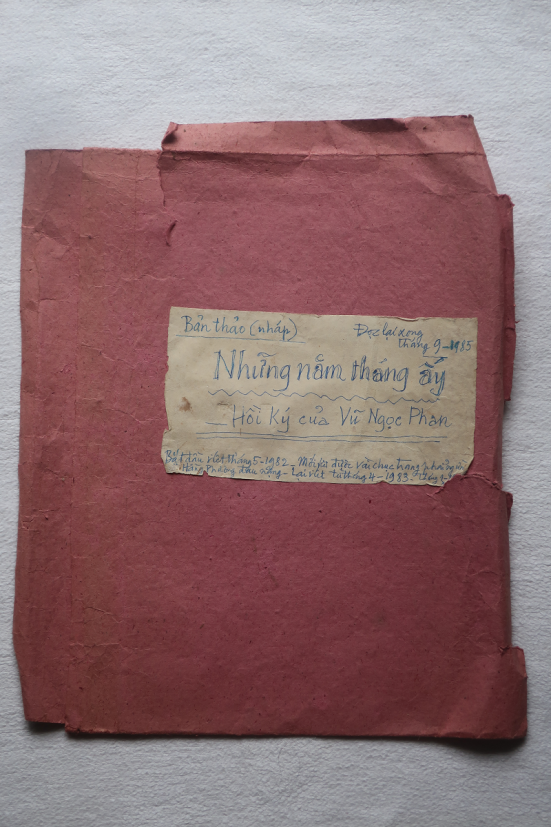 Bản thảo (nháp)
Đọc lại xong
tháng 9-1985
Những năm tháng ấy
- Hồi Ký của Vũ Ngọc Phan
Bắt đầu viết tháng 5-1982 - Mới viết được vài chục trang phải ngừng
Hằng Phương đau nặng - Lại viết từ tháng 4-1983.